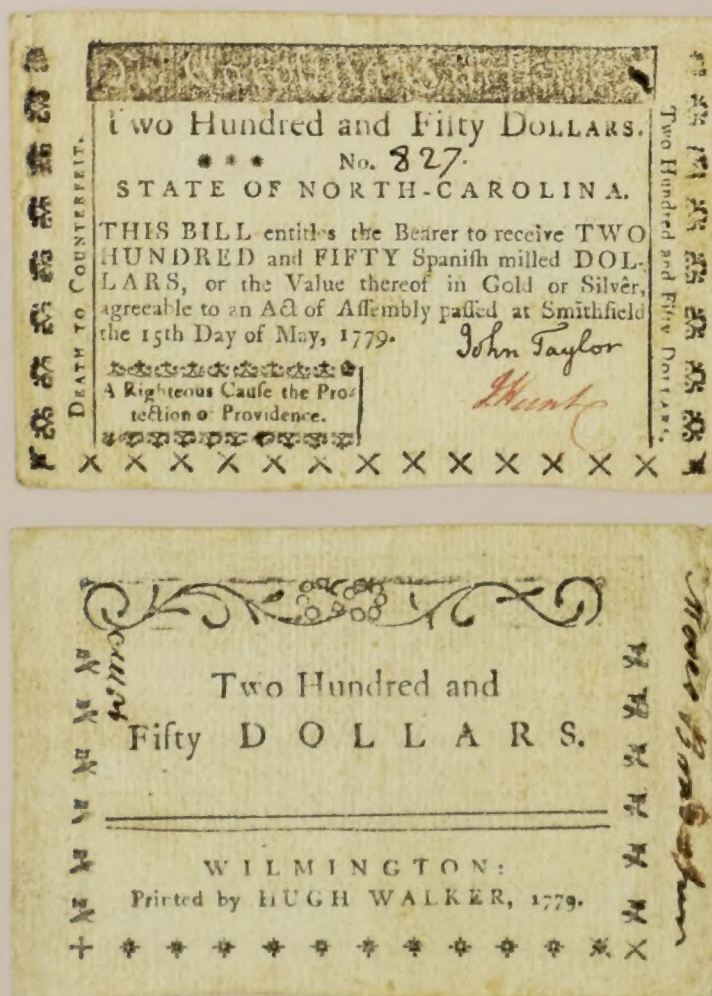 Two Hundred and Fifty DOLLARS.
* * * No. 827.
STATE OF NORTH-CAROLINA.
THIS BILL entitles the Bearer to receive TWO
HUNDRED and FIFTY Spaniſh milled DOL-
LARS, or the Value thereof in Gold or Silver,
agreeable to an Act of Aſſembly paſſed at Smithfield
the 15th Day of May, 1779.
John Taylor
JHunt
A Righteous Cauſe the Pro-
tection of Providence.
DEATH TO COUNTERFEIT.
Two Hundred and Fifty DOLLARS.
Two Hundred and
Fifty DOLLARS.
WILMINGTON:
Printed by HUGH WALKER, 1779.